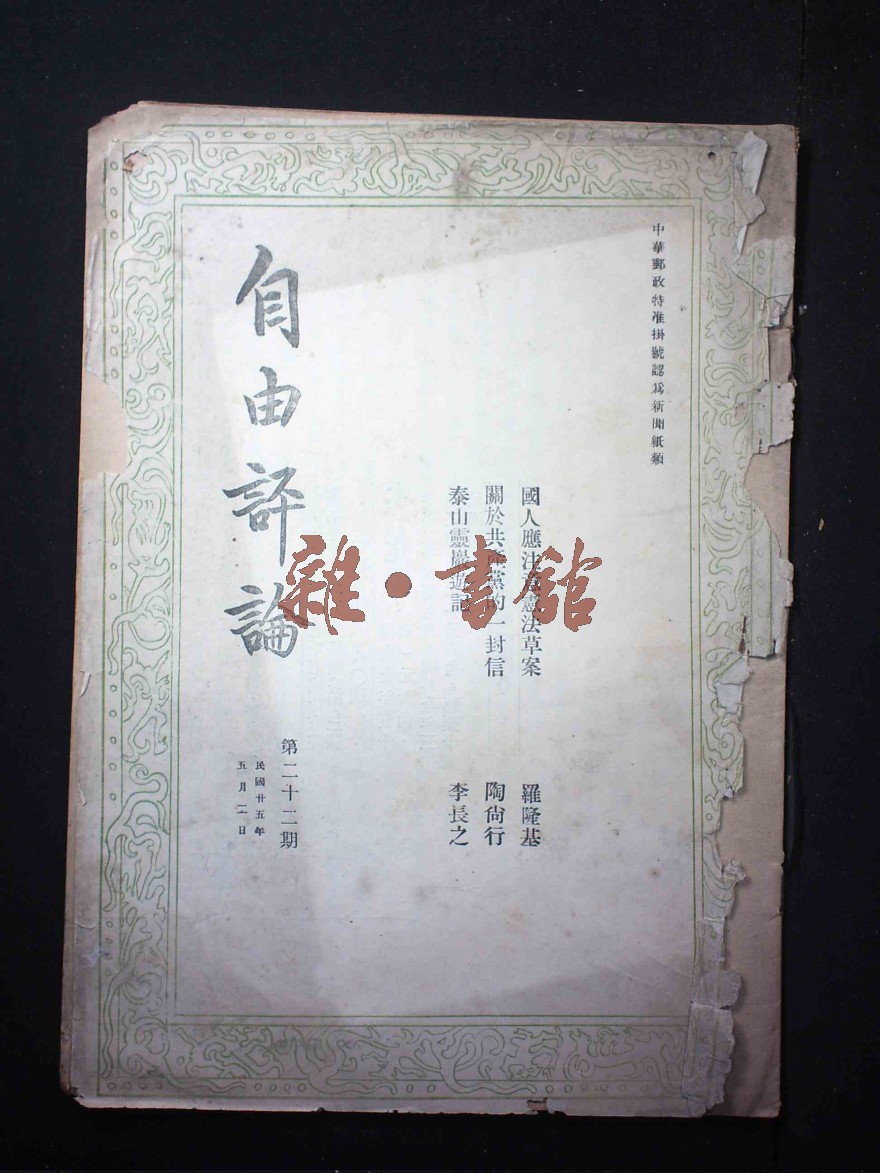 中華郵政特准掛號認為新聞紙類
國人應注意憲法草案 羅隆基
關於共產黨的一封信 陶尙行
泰山靈巖遊記 李長之
自由評論
第二十二期
民國廿五年
五月 日
雜·書館